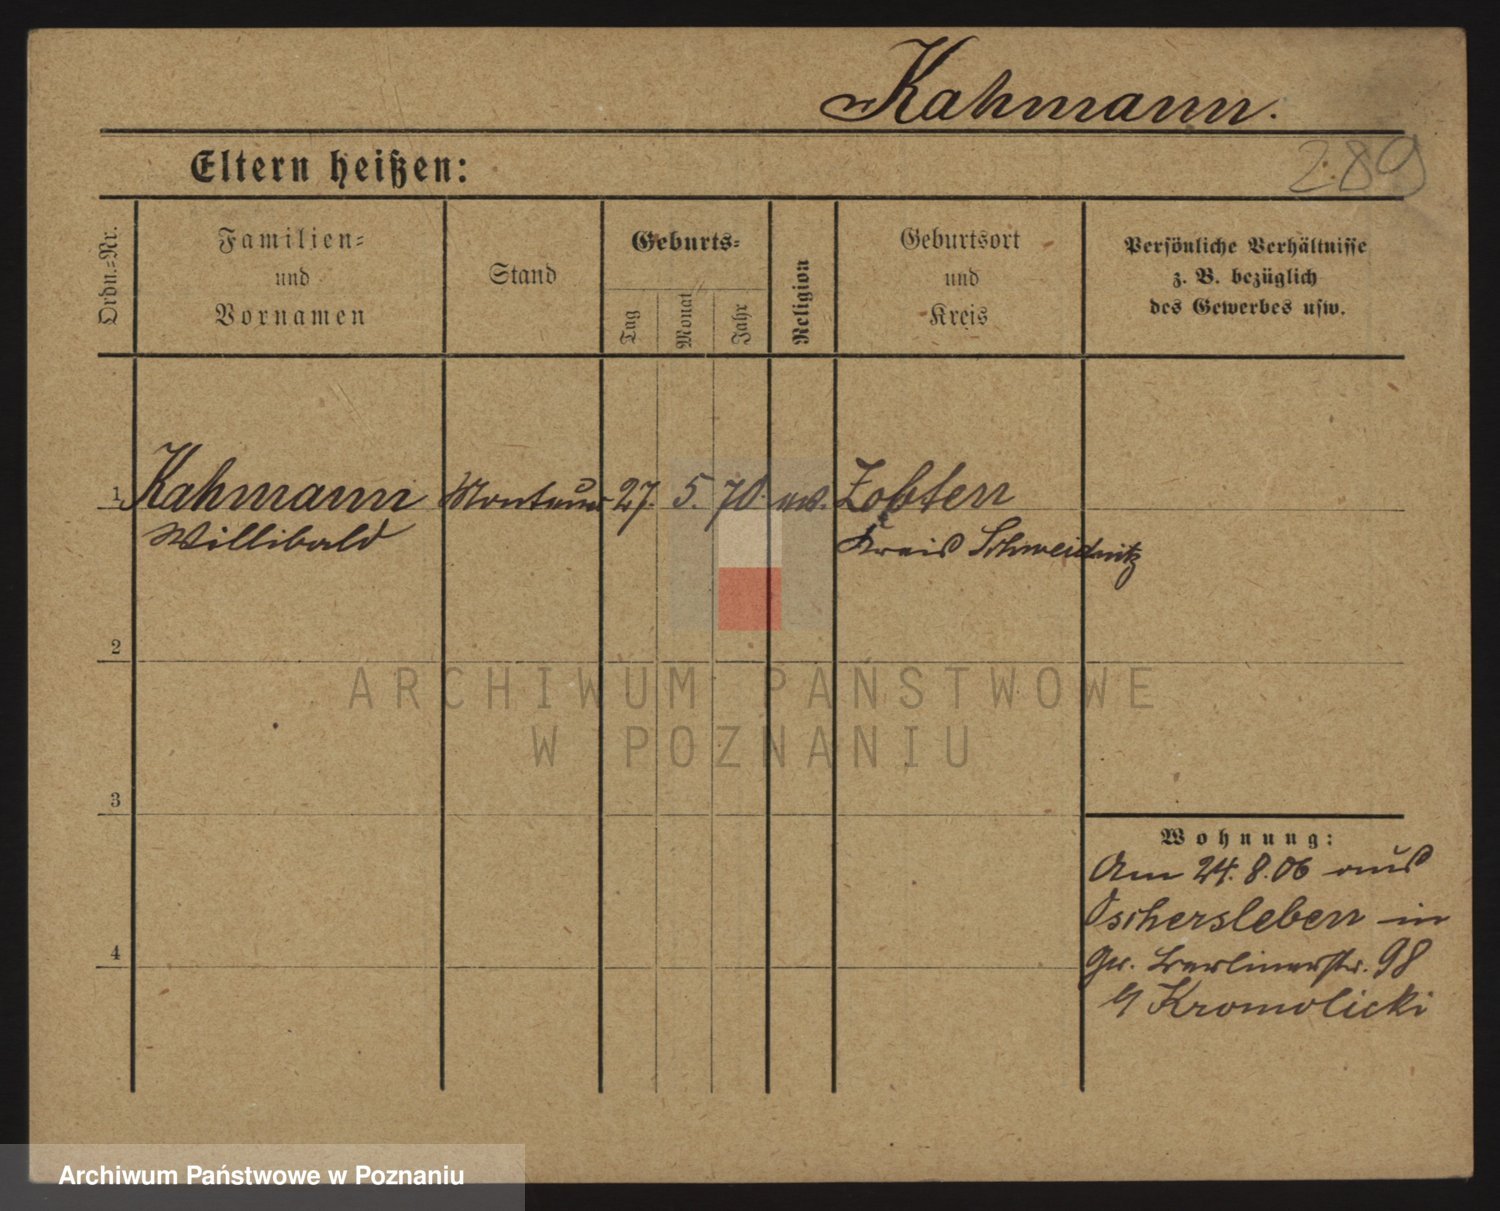 Kahmann.
289
Eltern heißen:
Ordn.-Nr.
Familien-
und
Vornamen
Stand
Geburts-
Tag
Monat
Jahr
Religion
Geburtsort
und
Kreis
Persönliche Verhältnisse
z. B. bezüglich
des Gewerbes usw.
1 Kahmann Monteur 27. 5. 70. ev. Zobten
Willibald Kreis Schweidnitz
2
3
4
Wohnung:
Am 24. 8. 06 aus
Oschersleben in
Gr. Berlinerstr. 98
Kromolicki
ARCHIWUM PAŃSTWOWE
W POZNANIU
Archiwum Państwowe w Poznaniu